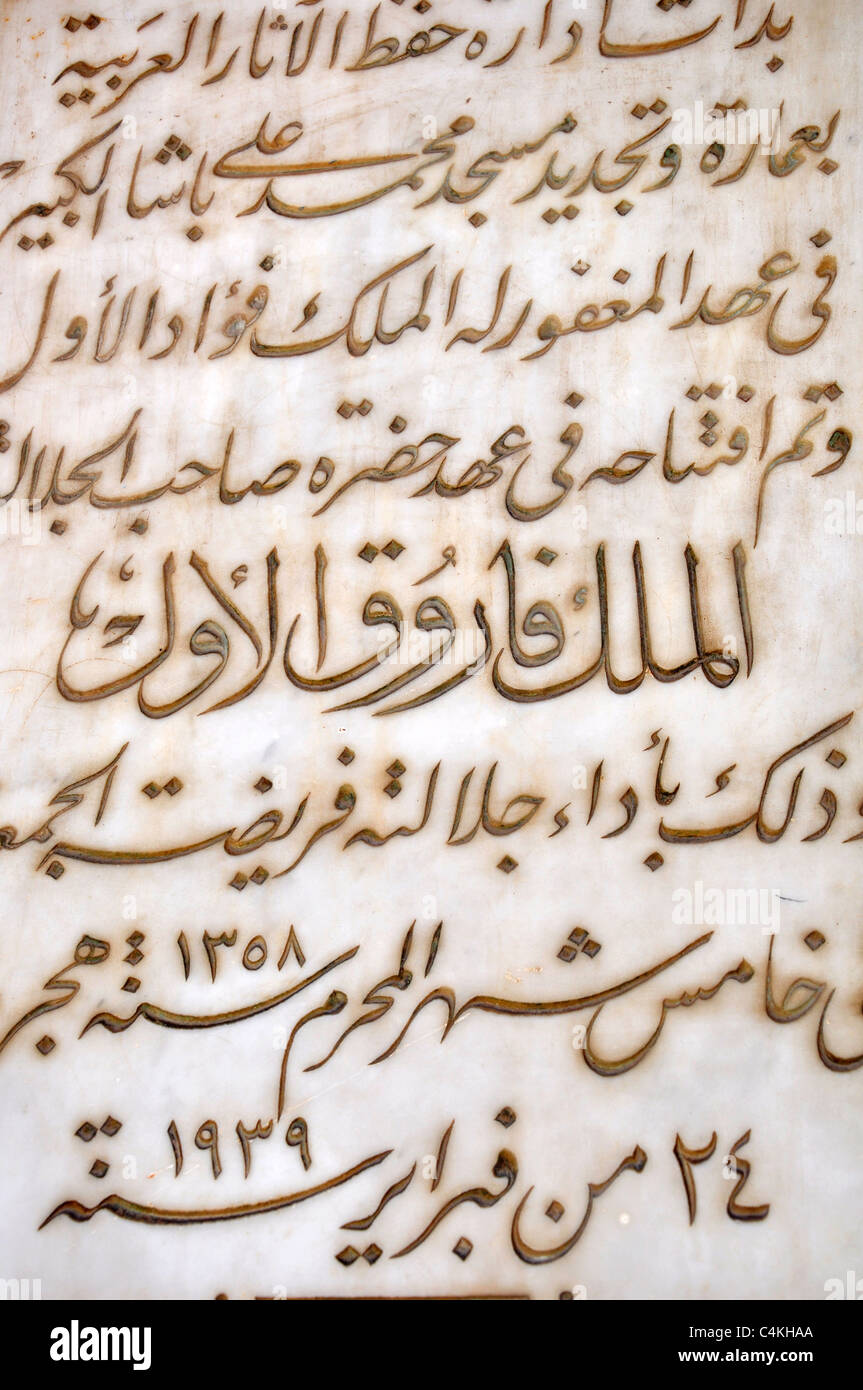 بدأت ادارة حفظ الآثار العربية
بعمارة وتجديد مسجد محمد على باشا الكبير
فى عهد المغفور له الملك فؤاد الأول
وتم افتتاحه فى عهد حضرة صاحب الجلالة
الملك فاروق الأول
وذلك بأداء جلالته فريضة الجمعة
خامس شهر المحرم سنة ١٣٥٨ هجر
٢٤ من فبراير سنة ١٩٣٩
alamy
Image ID: C4KHAA
www.alamy.com